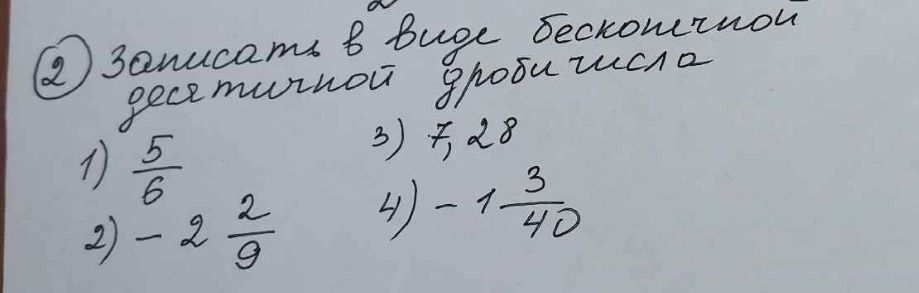 2 Записать в виде бесконечной
десятичной дроби числа
1) 5/6
3) 7,28
2) - 2 2/9
4) - 1 3/40